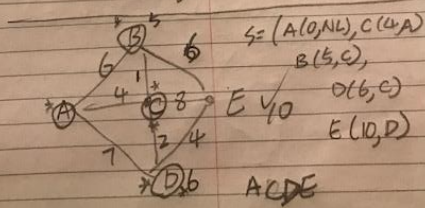 * B 5
6 1 6
* A 4 * C 8 E 10
7 2 4
* D 6
S = (A(0,NL), C(4,A)
B(5,C),
D(6,C)
E(10,D)
ACDE